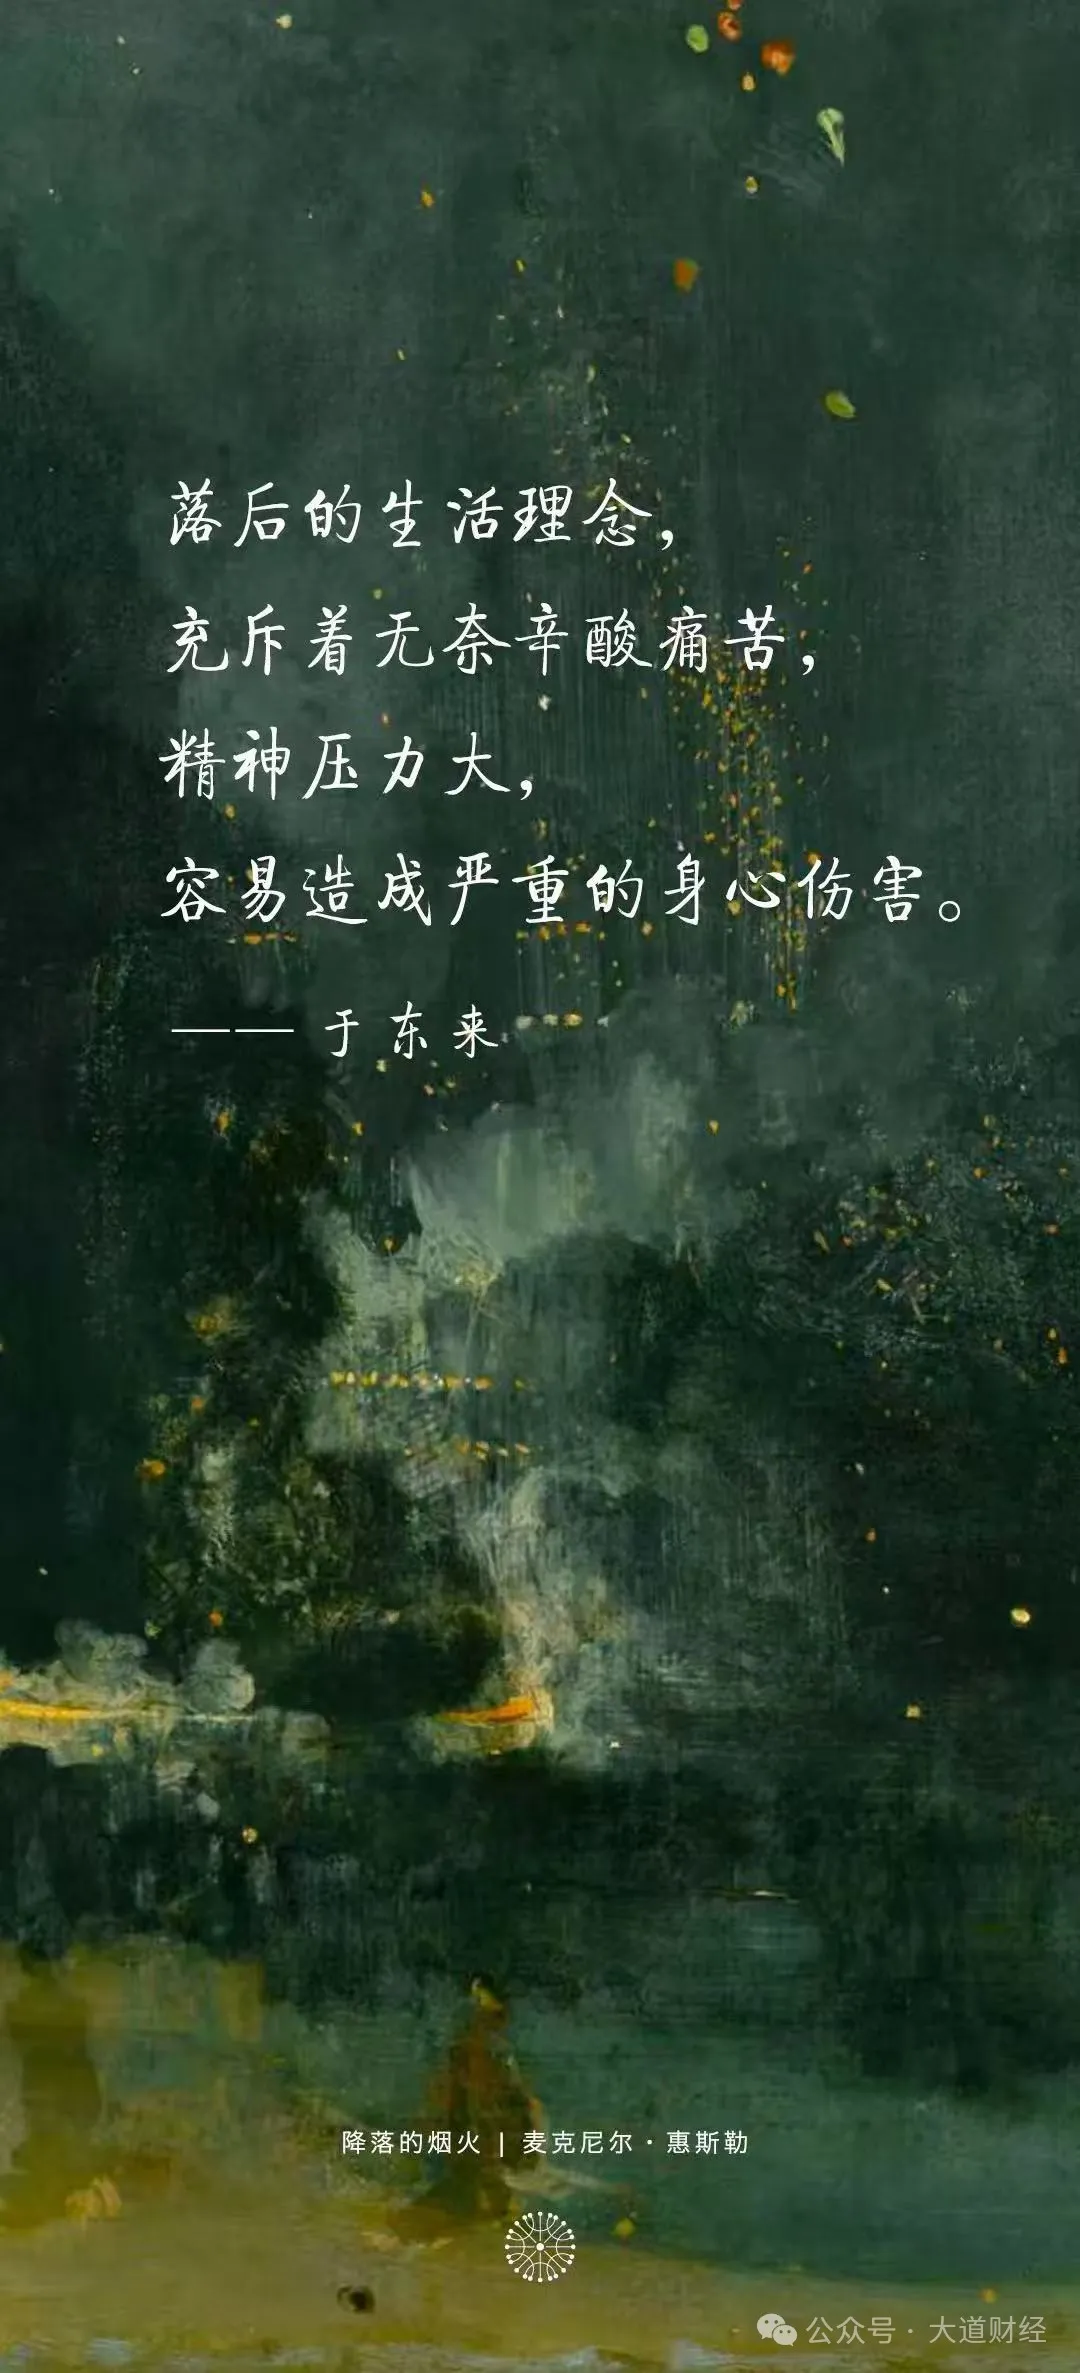 落后的生活理念，
充斥着无奈辛酸痛苦，
精神压力大，
容易造成严重的身心伤害。
—— 于东来
降落的烟火 | 麦克尼尔·惠斯勒
公众号·大道财经